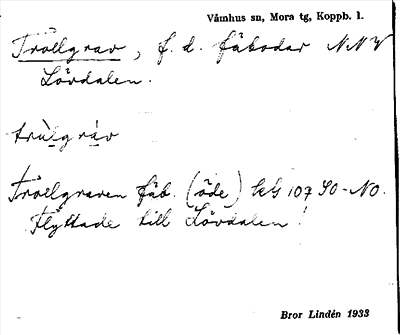 Våmhus sn, Mora tg, Koppb. l.
Trollgrav, f. d. fäbodar NNV
Lövdalen.
trùlgràv
Trollgraven fäb. (öde) kG 107 SO-NO.
Flyttade till Lövdalen!
Bror Lindén 1933